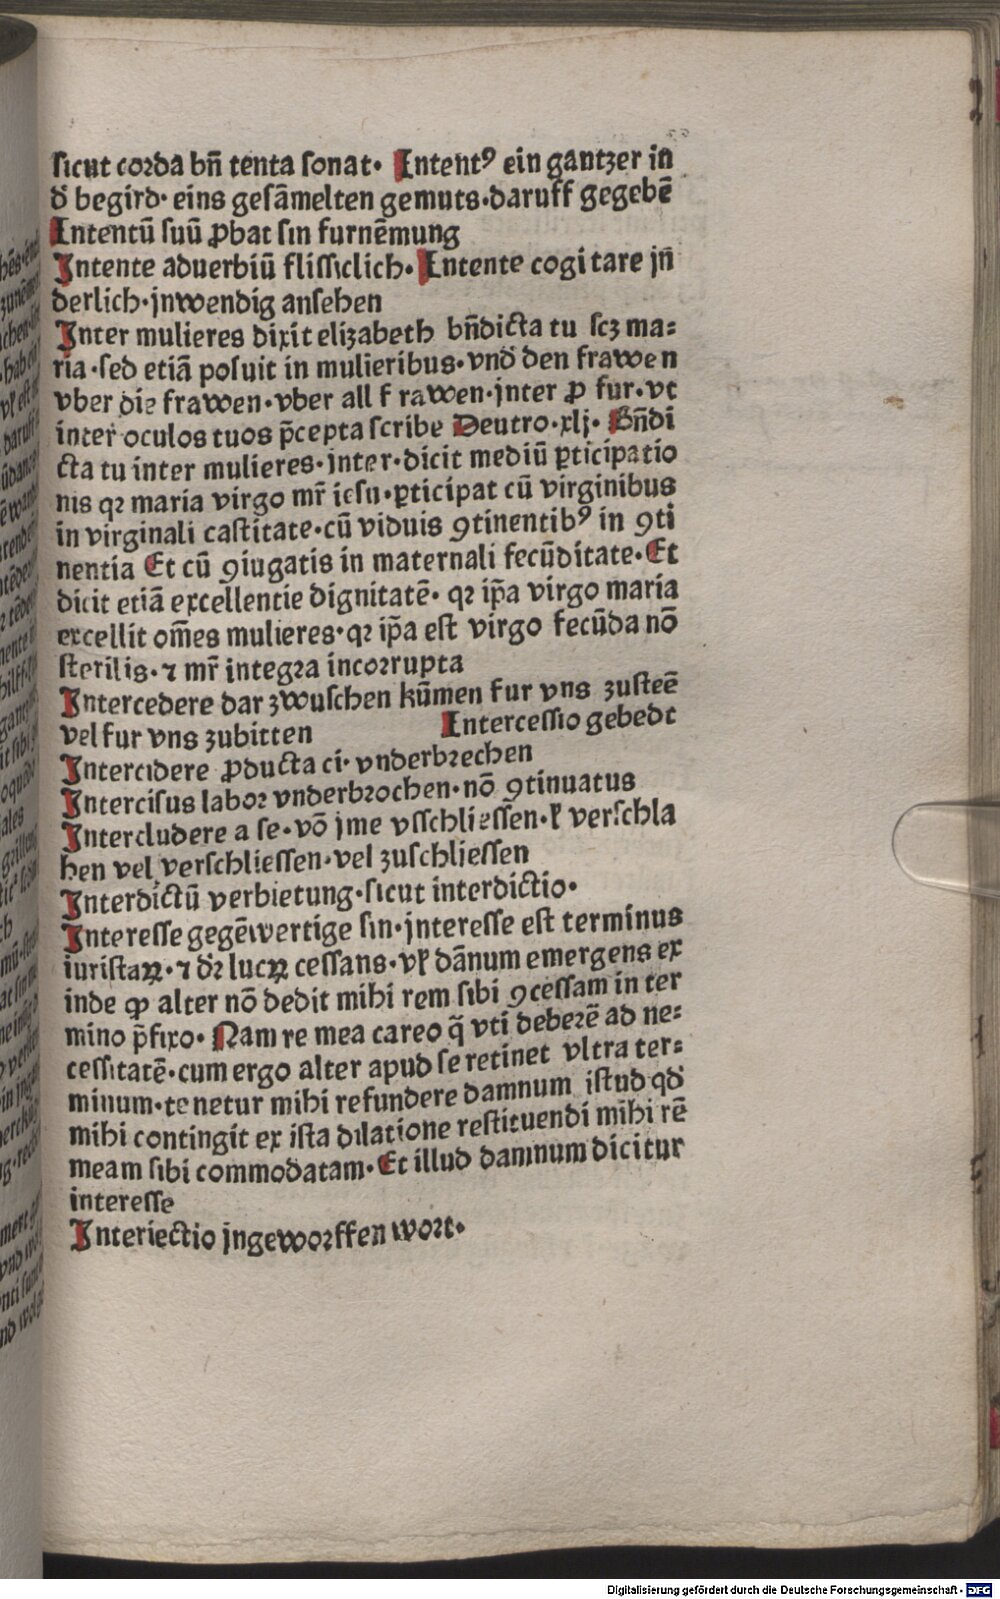 sicut corda bn̄ tenta sonat· Intentꝰ ein gantzer in
d̕ begird· eins gesāmelten gemuts·daruff gegebē
Intentū suū ꝓbat sin furnēmung
Intente aduerbiū flissiclich· Intente cogitare jn̄
derlich·jnwendig ansehen
Inter mulieres dixit elizabeth bn̄dicta tu scz ma⸗
ria·sed etiā posuit in mulieribus·vnd̕ den frawen
vber die frawen·vber all frawen·jnter ꝓ fur·vt
inter oculos tuos p̄cepta scribe Deutro·xlj· Bn̄di
cta tu inter mulieres·inter·dicit mediū ꝑticipatio
nis qꝛ maria virgo mr̄ iesu·ꝑticipat cū virginibus
in virginali castitate·cū viduis ꝯtinentibꝰ in ꝯti
nentia Et cū ꝯiugatis in maternali fecūditate·Et
dicit etiā excellentie dignitatē· qꝛ ip̄a virgo maria
excellit om̄es mulieres·qꝛ ip̄a est virgo fecūda nō
sterilis·⁊ mr̄ integra incorrupta
Intercedere dar zwuschen kūmen fur vns zusteē
vel fur vns zubitten Intercessio gebedt
Intercidere ꝓducta ci· vnderbrechen
Intercisus labor vnderbrochen·nō ꝯtinuatus
Intercludere a se·vō jme vsschliessen·ł verschla
hen vel verschliessen·vel zuschliessen
Interdictū verbietung·sicut interdictio·
Interesse gegēwertige sin·jnteresse est terminus
iuristaꝝ·⁊ d̕r lucꝝ cessans·vł dānum emergens ex
inde ꝙ alter nō dedit mihi rem sibi ꝯcessam in ter
mino p̄fixo· Nam re mea careo q̄ vti deberē ad ne⸗
cessitatē·cum ergo alter apud se retinet vltra ter⸗
minum·tenetur mihi refundere damnum istud qd̕
mihi contingit ex ista dilatione restituendi mihi rē
meam sibi commodatam·Et illud damnum dicitur
interesse
Interiectio jngeworffen wort·
Digitalisierung gefördert durch die Deutsche Forschungsgemeinschaft - DFG